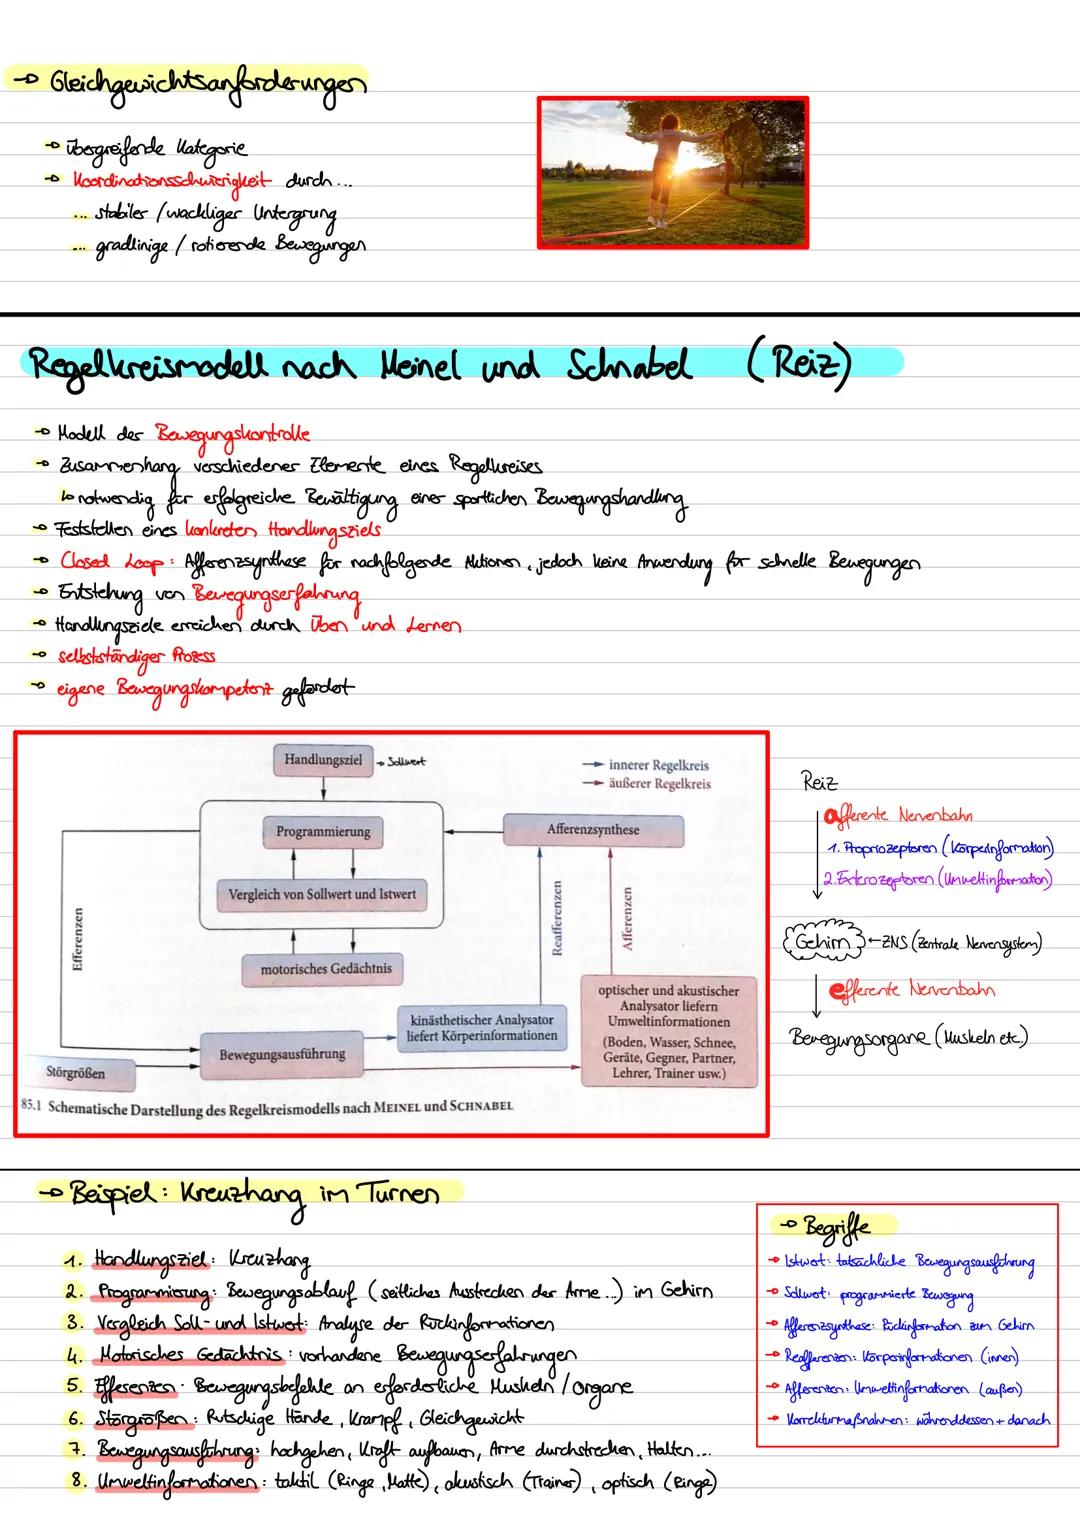 → Gleichgewichtsanforderungen
→ übergreifende Kategorie
→ Koordinationsschwierigkeit durch...
... stabiler / wackliger Untergrung
... gradlinige / rotierende Bewegungen
Regelkreismodell nach Meinel und Schnabel (Reiz)
→ Modell der Bewegungskontrolle
→ Zusammenhang verschiedener Elemente eines Regelkreises
↳ notwendig für erfolgreiche Bewältigung einer sportlichen Bewegungshandlung
→ Feststellen eines konkreten Handlungsziels
→ Closed Loop: Afferenzsynthese für nachfolgende Aktionen, jedoch keine Anwendung für schnelle Bewegungen
→ Entstehung von Bewegungserfahrung
→ Handlungsziele erreichen durch Üben und Lernen
→ selbstständiger Prozess
→ eigene Bewegungskompetenz gefordert
Handlungsziel → Sollwert
→ innerer Regelkreis
→ äußerer Regelkreis
Programmierung
Afferenzsynthese
Vergleich von Sollwert und Istwert
Efferenzen
Reafferenzen
Afferenzen
motorisches Gedächtnis
kinästhetischer Analysator
liefert Körperinformationen
optischer und akustischer
Analysator liefern
Umweltinformationen
(Boden, Wasser, Schnee,
Geräte, Gegner, Partner,
Lehrer, Trainer usw.)
Bewegungsausführung
Störgrößen
85.1 Schematische Darstellung des Regelkreismodells nach MEINEL und SCHNABEL
Reiz
afferente Nervenbahn
1. Propriozeptoren (Körperinformation)
2. Exterozeptoren (Umweltinformation)
Gehirn ← ZNS (Zentrale Nervensystem)
efferente Nervenbahn
Bewegungsorgane (Muskeln etc.)
→ Beispiel: Kreuzhang im Turnen
1. Handlungsziel: Kreuzhang
2. Programmierung: Bewegungsablauf (seitliches Ausstrecken der Arme...) im Gehirn
3. Vergleich Soll- und Istwert: Analyse der Rückinformationen
4. Motorisches Gedächtnis: vorhandene Bewegungserfahrungen
5. Efferenzen: Bewegungsbefehle an erforderliche Muskeln / Organe
6. Störgrößen: Rutschige Hände, Krampf, Gleichgewicht
7. Bewegungsausführung: hochgehen, Kraft aufbauen, Arme durchstrecken, Halten...
8. Umweltinformationen: taktil (Ringe, Matte), akustisch (Trainer), optisch (Ringe)
→ Begriffe
→ Istwert: tatsächliche Bewegungsausführung
→ Sollwert: programmierte Bewegung
→ Afferenzsynthese: Rückinformation zum Gehirn
→ Reafferenzen: Körperinformationen (innen)
→ Afferenzen: Umweltinformationen (außen)
→ Korrekturmaßnahmen: währenddessen + danach